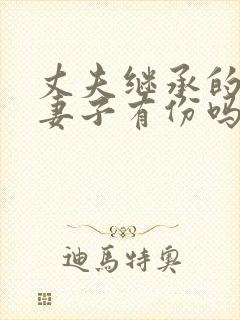 丈夫继承的
妻子有份吗
迪馬特奧